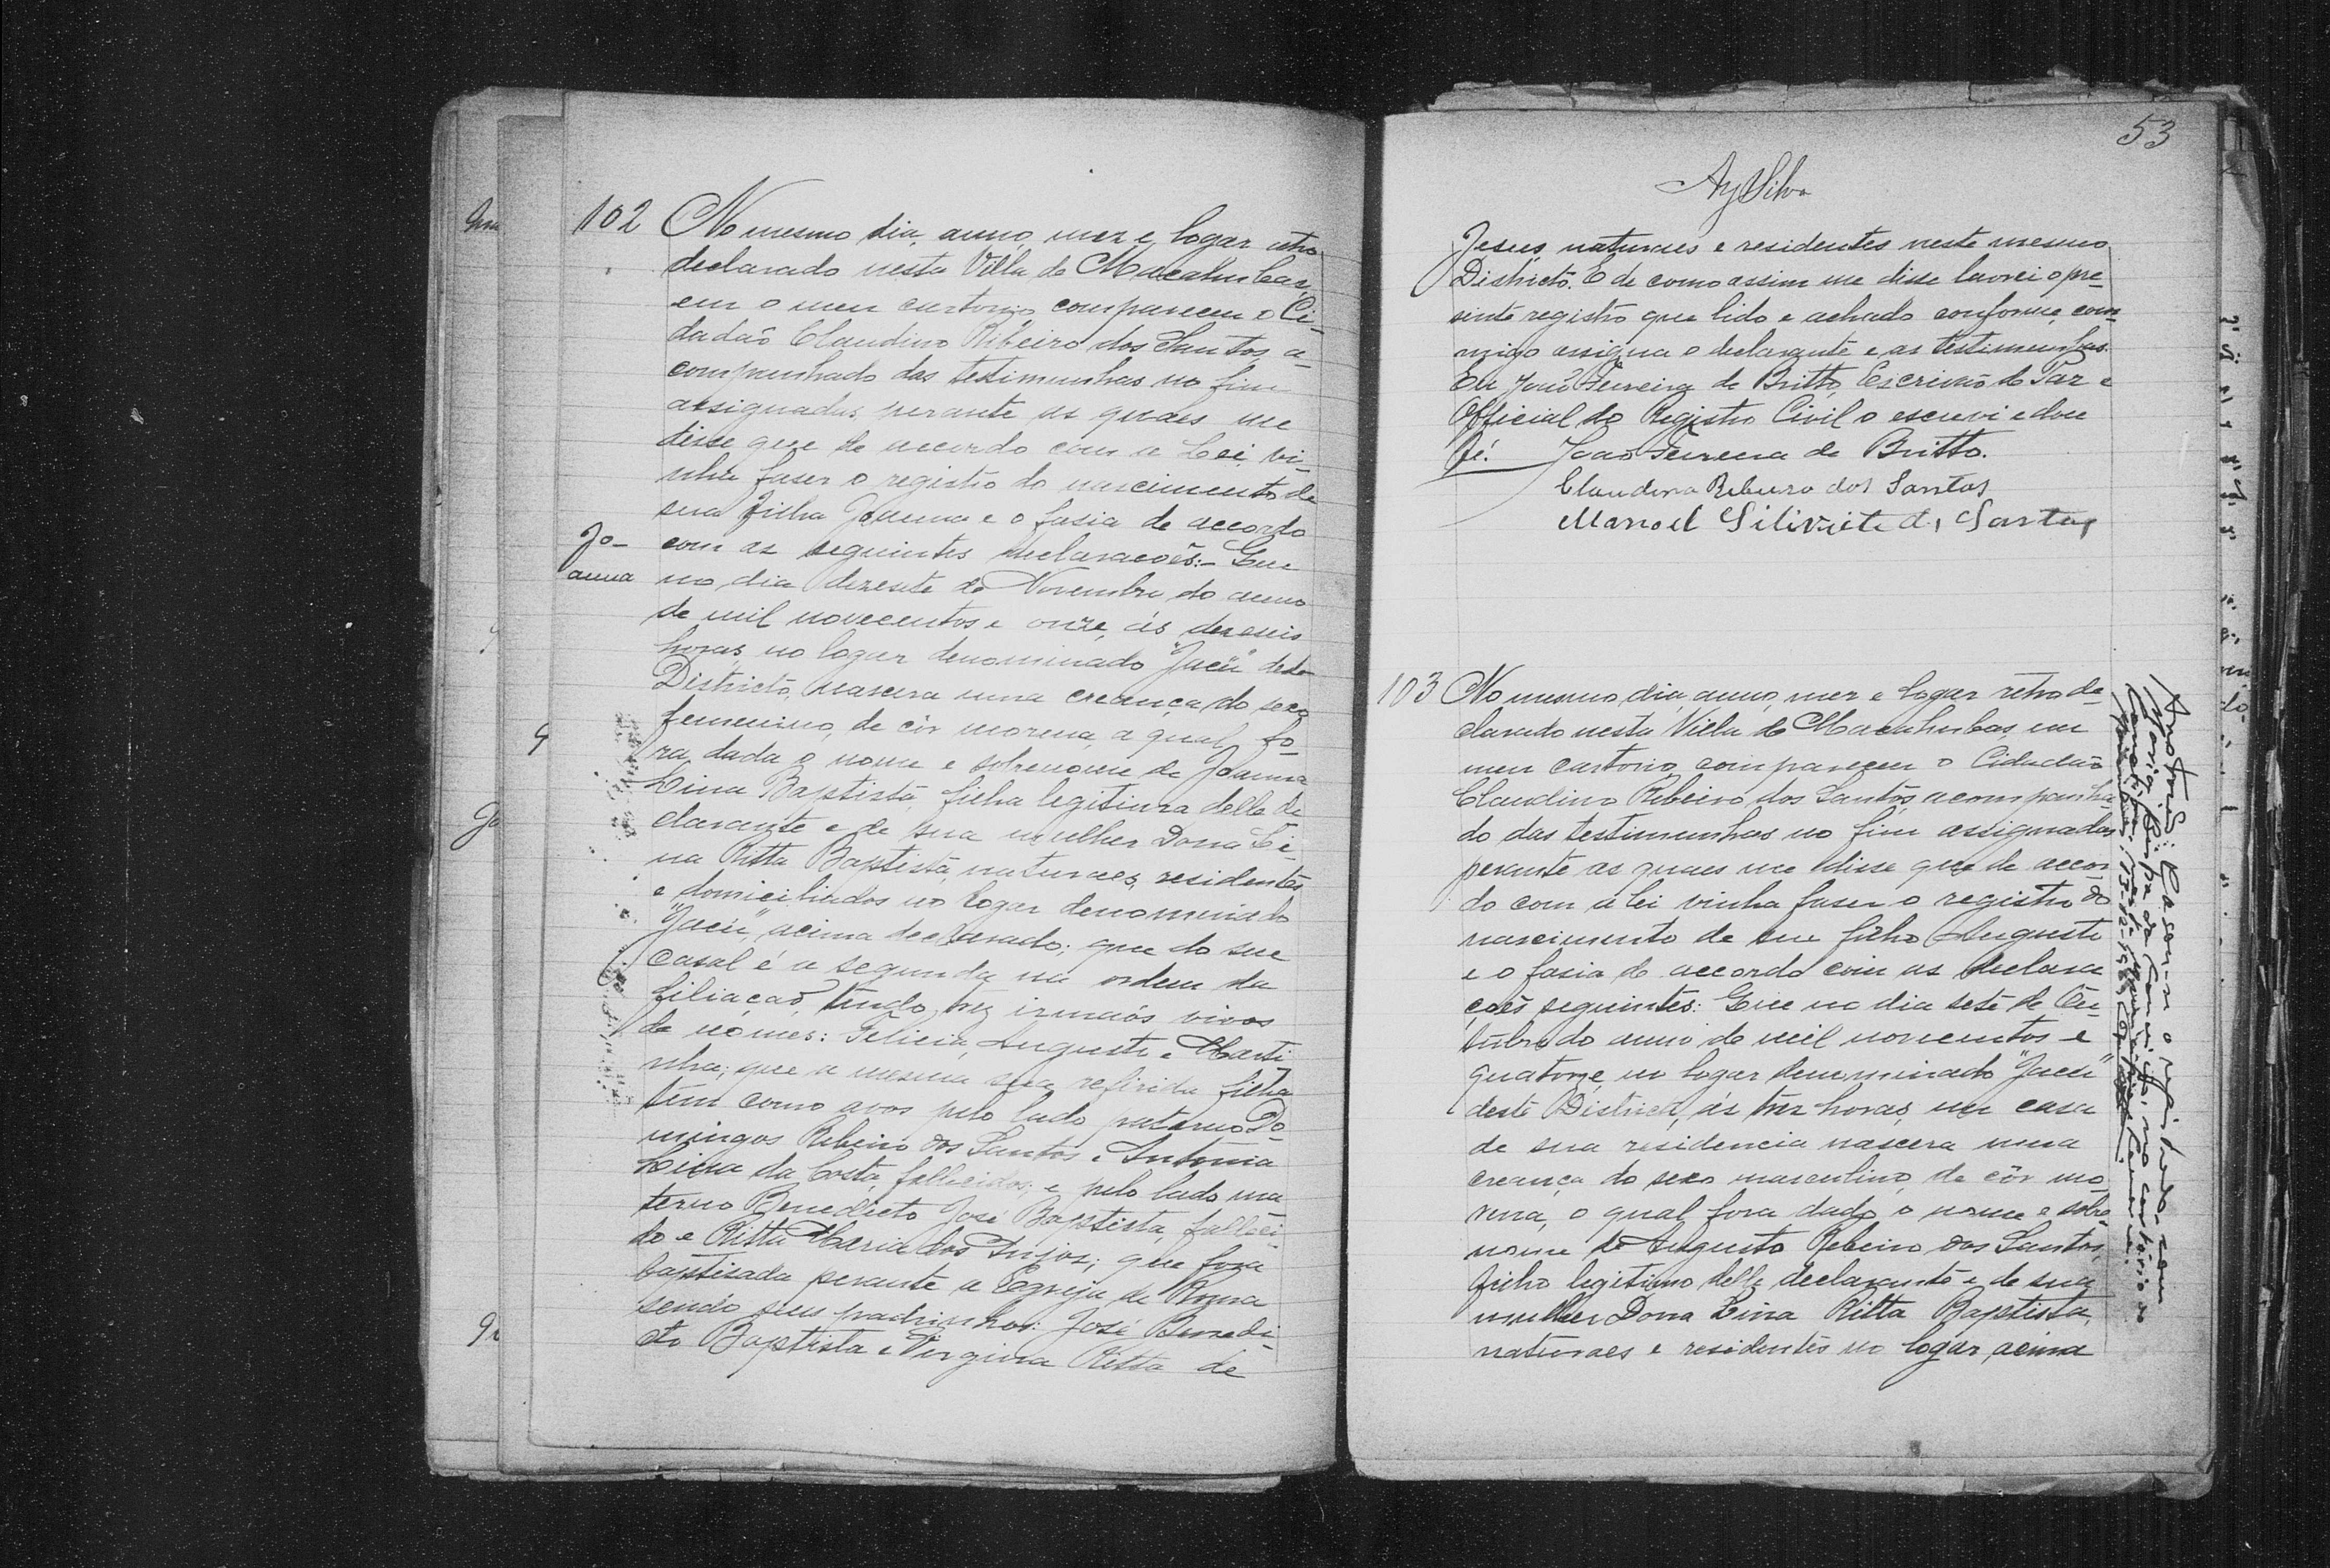 102
No mesmo dia, anno, mez e logar retro
declarado nesta Villa de Macahubas,
em o meu cartorio compareceu o Ci-
dadão Claudino Ribeiro dos Santos, a-
companhado das testimunhas no fim
assignadas, perante as quaes me
disse que de accordo com a Lei, vi-
nha faser o registro do nascimento de
sua filha Joanna e o fasia de accordo
Jo-
anna
com as seguintes declaracoēs:- Que
no dia dezesete de Novembro do anno
de mil novecentos e onze, ás dezeseis
horas, no logar denominado "Jacú" deste
Districto, nascera uma creança do sexo
femenino, de côr morena, a qual fo-
ra dada o nome e sobrenome de Joanna
Lina Baptista, filha legitima delle de
clarante e de sua mulher Dona Li-
na Ritta Baptista, naturaes, residentes
e domiciliados no logar denominado
"Jacú", acima declarado; que do seu
casal é a segunda na ordem da
filiação, tendo trez irmaõs vivos
de nomes: Felicia, Augusto e Marti
nha; que a mesma sua referida filha
tem como avos pelo lado paterno Do-
mingos Ribeiro dos Santos e Antonia
Lina da Costa, fallecidos; e pelo lado ma
terno Benedicto José Baptista, falleci-
do e Ritta Maria dos Anjos; que fora
baptisada perante a Egreja de Roma
sendo seus padrinhos: José Benedi-
cto Baptista e Virginia Ritta de
53
Jesus, naturaes e residentes neste mesmo
Districto. E de como assim me disse lavrei o pre-
sente registro que lido e achado conforme, com-
migo assigna o declarante e as testimunhas.
Eu João Ferreira de Britto, Escrivão de Paz e
Official do Registro Civil o escrevi e dou
fé. João Ferreira de Britto.
Claudino Ribeiro dos Santos
Manoel Silivrite d, Santos
103
No mesmo dia, anno, mez e logar retro de-
clarado nesta Villa de Macahubas, em
meu cartorio, compareceu o Cidadão
Claudino Ribeiro dos Santos, acompanha
do das testimunhas no fim assignadas,
perante as quaes me disse que de accor-
do com a lei vinha faser o registro do
nascimento de seu filho Augusto
e o fasia de accordo com as declara
çoēs seguintes: Que no dia sete de Ou-
tubro do anno de mil novecentos e
quatorze, no logar denominado "Jacú"
deste Districto, ás trez horas, em casa
de sua residencia nascera uma
creança do sexo masculino, de côr mo-
rena, o qual fora dado o nome e sobre-
nome de Augusto Ribeiro dos Santos,
filho legitimo delle declarante e de sua
mulher Dona Lina Ritta Baptista,
naturaes e residentes no logar acima
Casou-se o registrado com